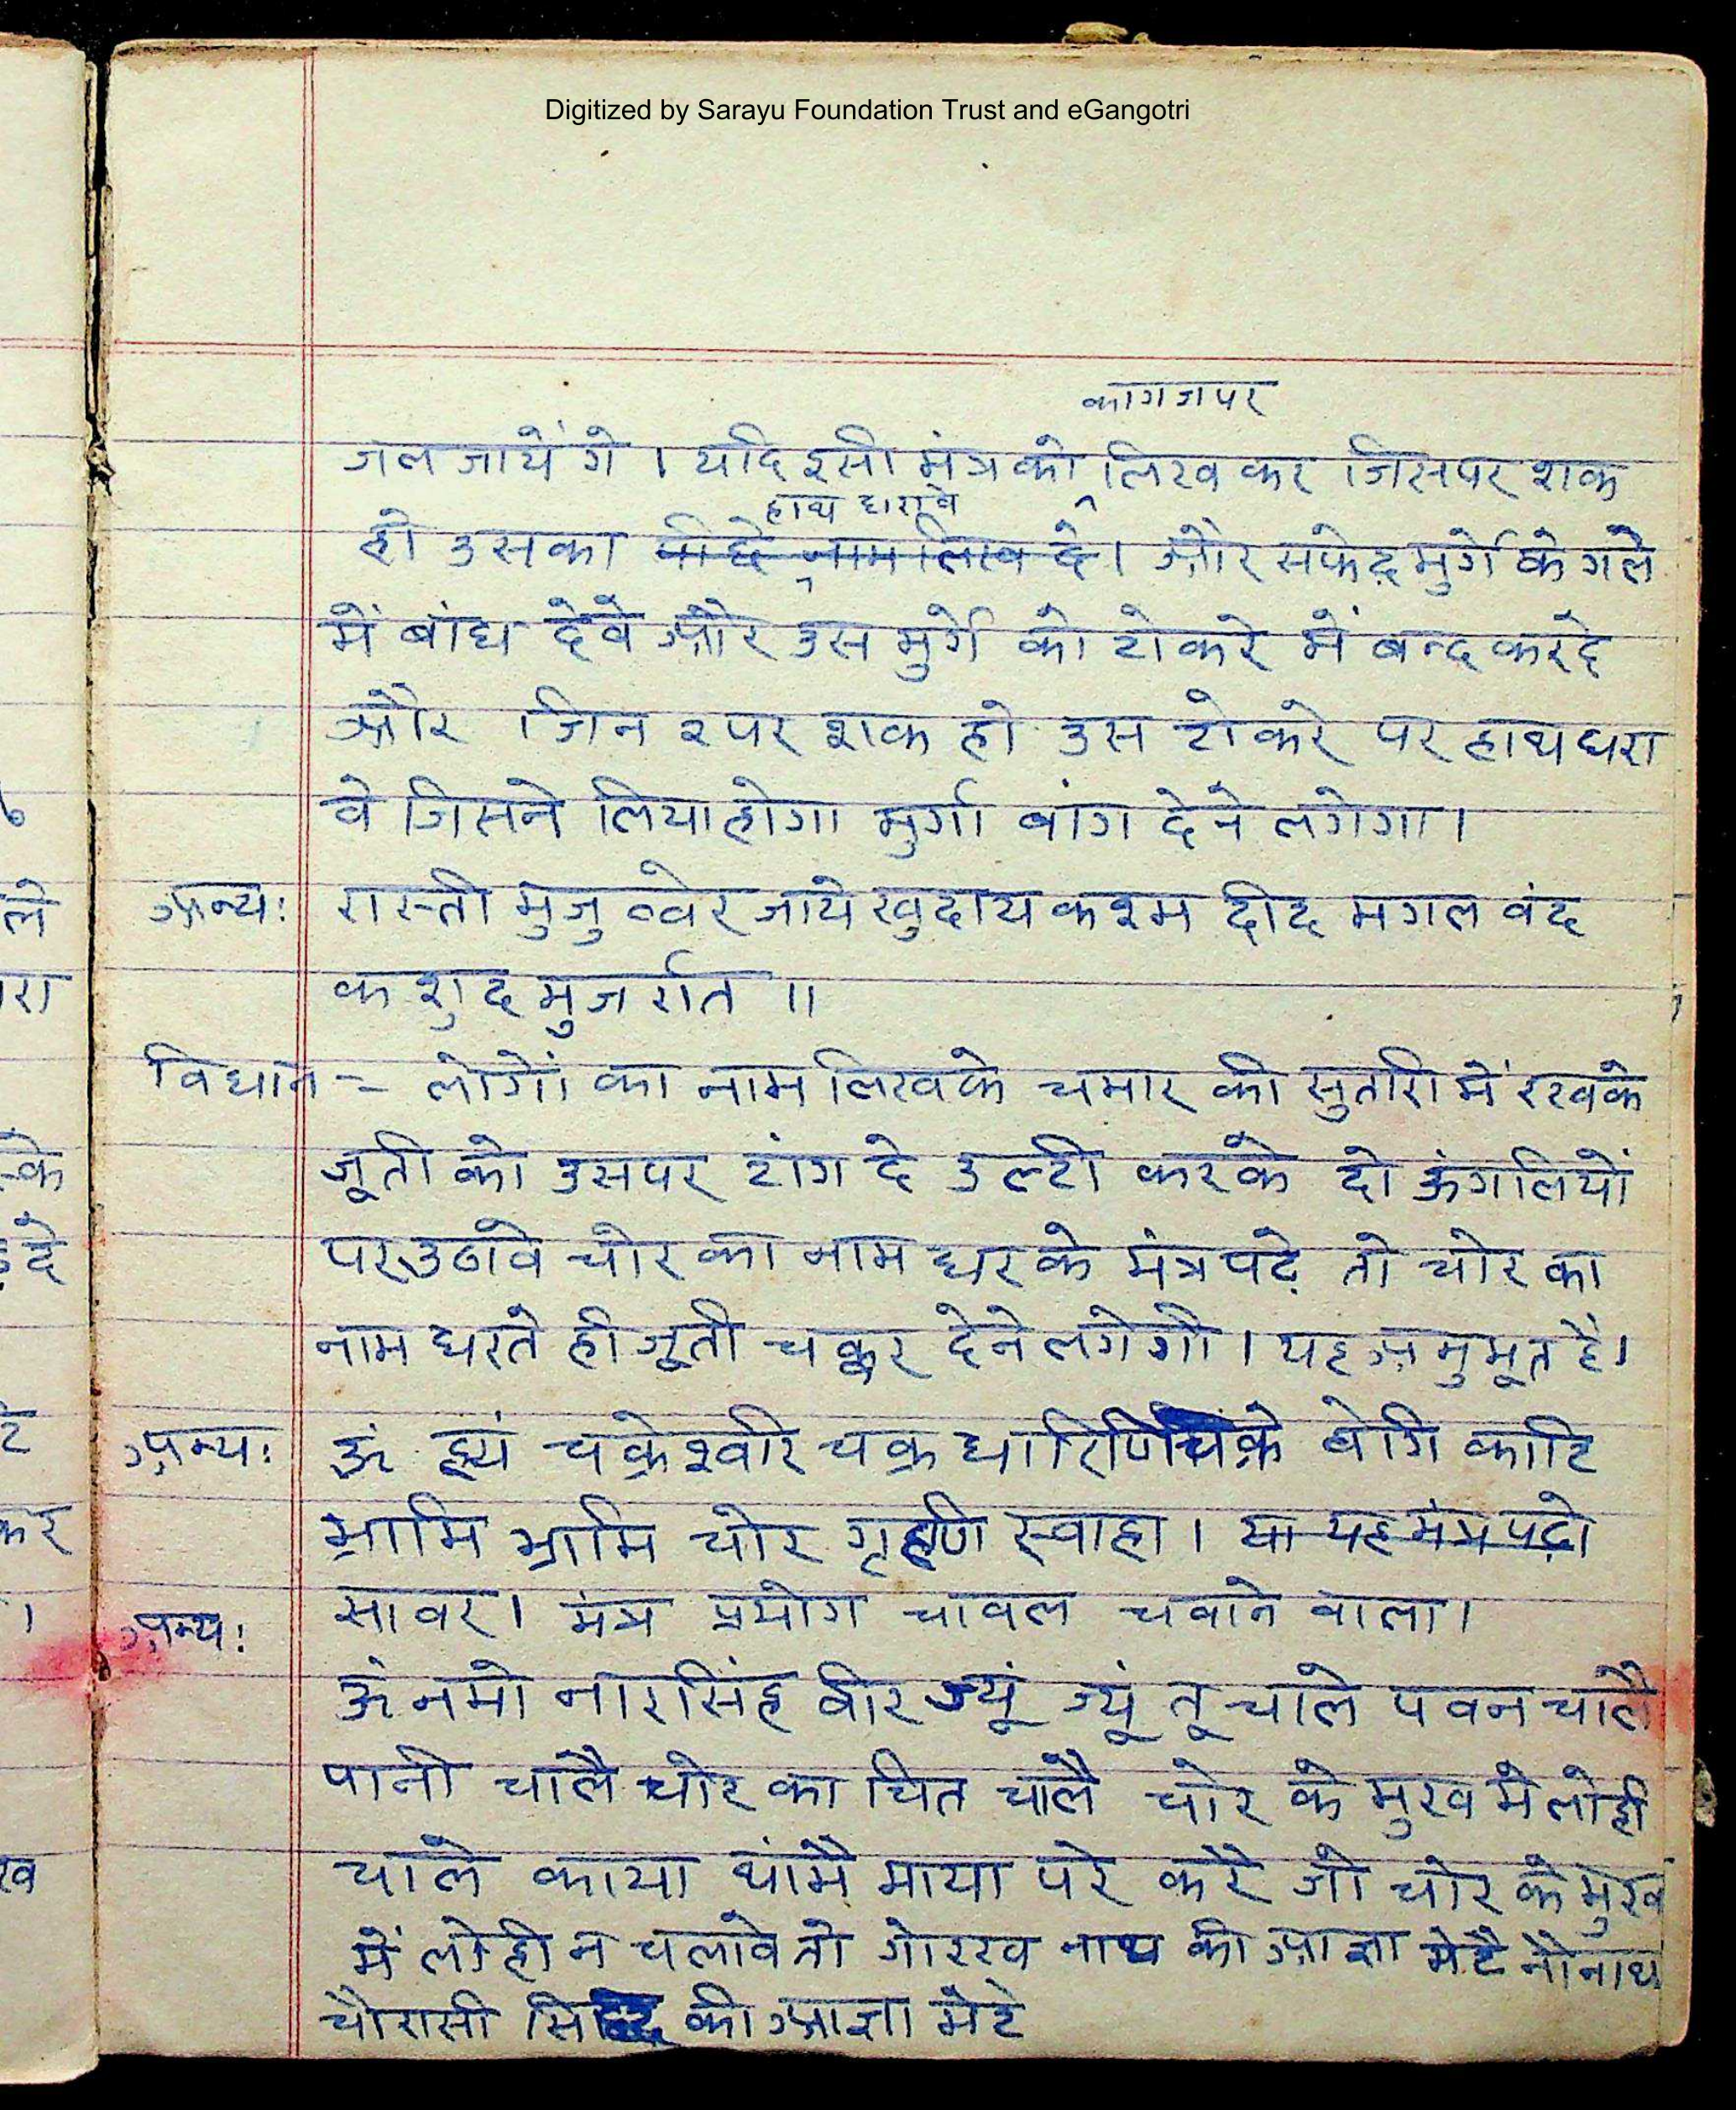 Digitized by Sarayu Foundation Trust and eGangotri
कागज पर
जल जायें गे । यदि इसी मंत्र को लिख कर जिसपर शक
हाथ धरावे
हो उसका पीछे नाम लिख दे। और सफेद मुर्गे के गले
में बांध देवे और उस मुर्गे को टोकरे में बन्द करदे
और जिन २ पर शक हो उस टोकरे पर हाथ धरा
वे जिसने लिया होगा मुर्गा बांग देने लगेगा।
अन्य: रास्ती मुजु व्वेर जाये खुदाय कश्म दीद मगल वंद
क शुद मुजर्रात ॥
विधान = लोगों का नाम लिखके चमार की सुतारी में रखके
जूती को उसपर टांग दे उल्टी करके दो ऊंगलियों
पर उठावे चोर का नाम धर के मंत्र पढे़ तो चोर का
नाम धरते ही जूती चक्कर देने लगेगी। यह अनुभूत है।
अन्य: ॐ चक्रेश्वरि चक्र धारिणि चक्रे वेगि काटि
भ्रामि भ्रामि चोर गृहणि स्वाहा। या यह मंत्र पढ़ो
अन्य: सावर। मंत्र प्रयोग चावल चवाने वाला।
ॐ नमो नारसिंह वीर ज्यूं ज्यूं तू चाले पवन चालै
पानी चालै चोर का चित चालै चोर के मुख मे लोही
चाले काया थांमै माया परे करै जो चोर के मुख
में लोही न चलावे तो गोरख नाथ की आज्ञा मेटै नौ नाथ
चौरासी सिद्ध की आज्ञा मेटे
ले
रा
के
दे
टे
कर
।
ख